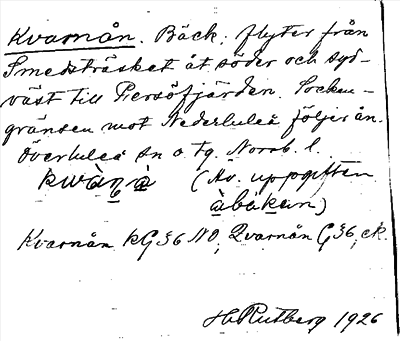 Kvarnån. Bäck, flyter från
Smedsträsket åt söder och syd-
väst till Persöfjärden. Socken-
gränsen mot Nederluleå följer ån.
Överluleå sn o. tg. Norrb. l.
kwàṇa (Äv. uppgiften
àbäkan)
Kvarnån kG§6 NO, Qvarnån G§6, ek.
H Rutberg 1926